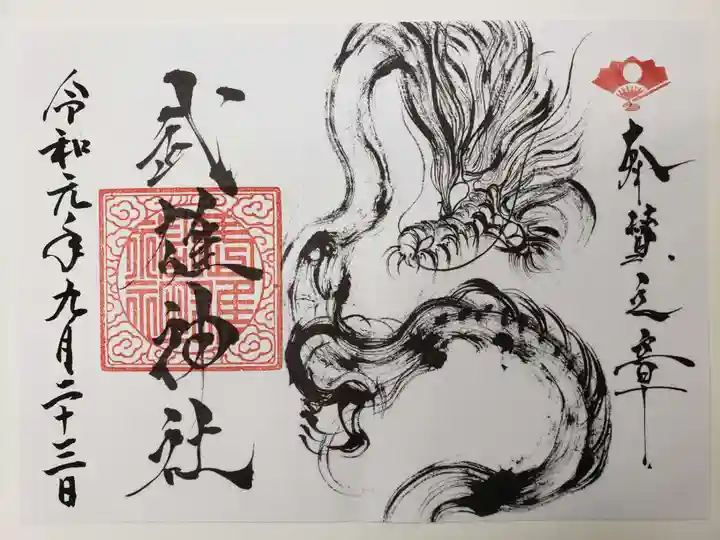 奉賛之章
武雄神社
令和元年九月二十三日